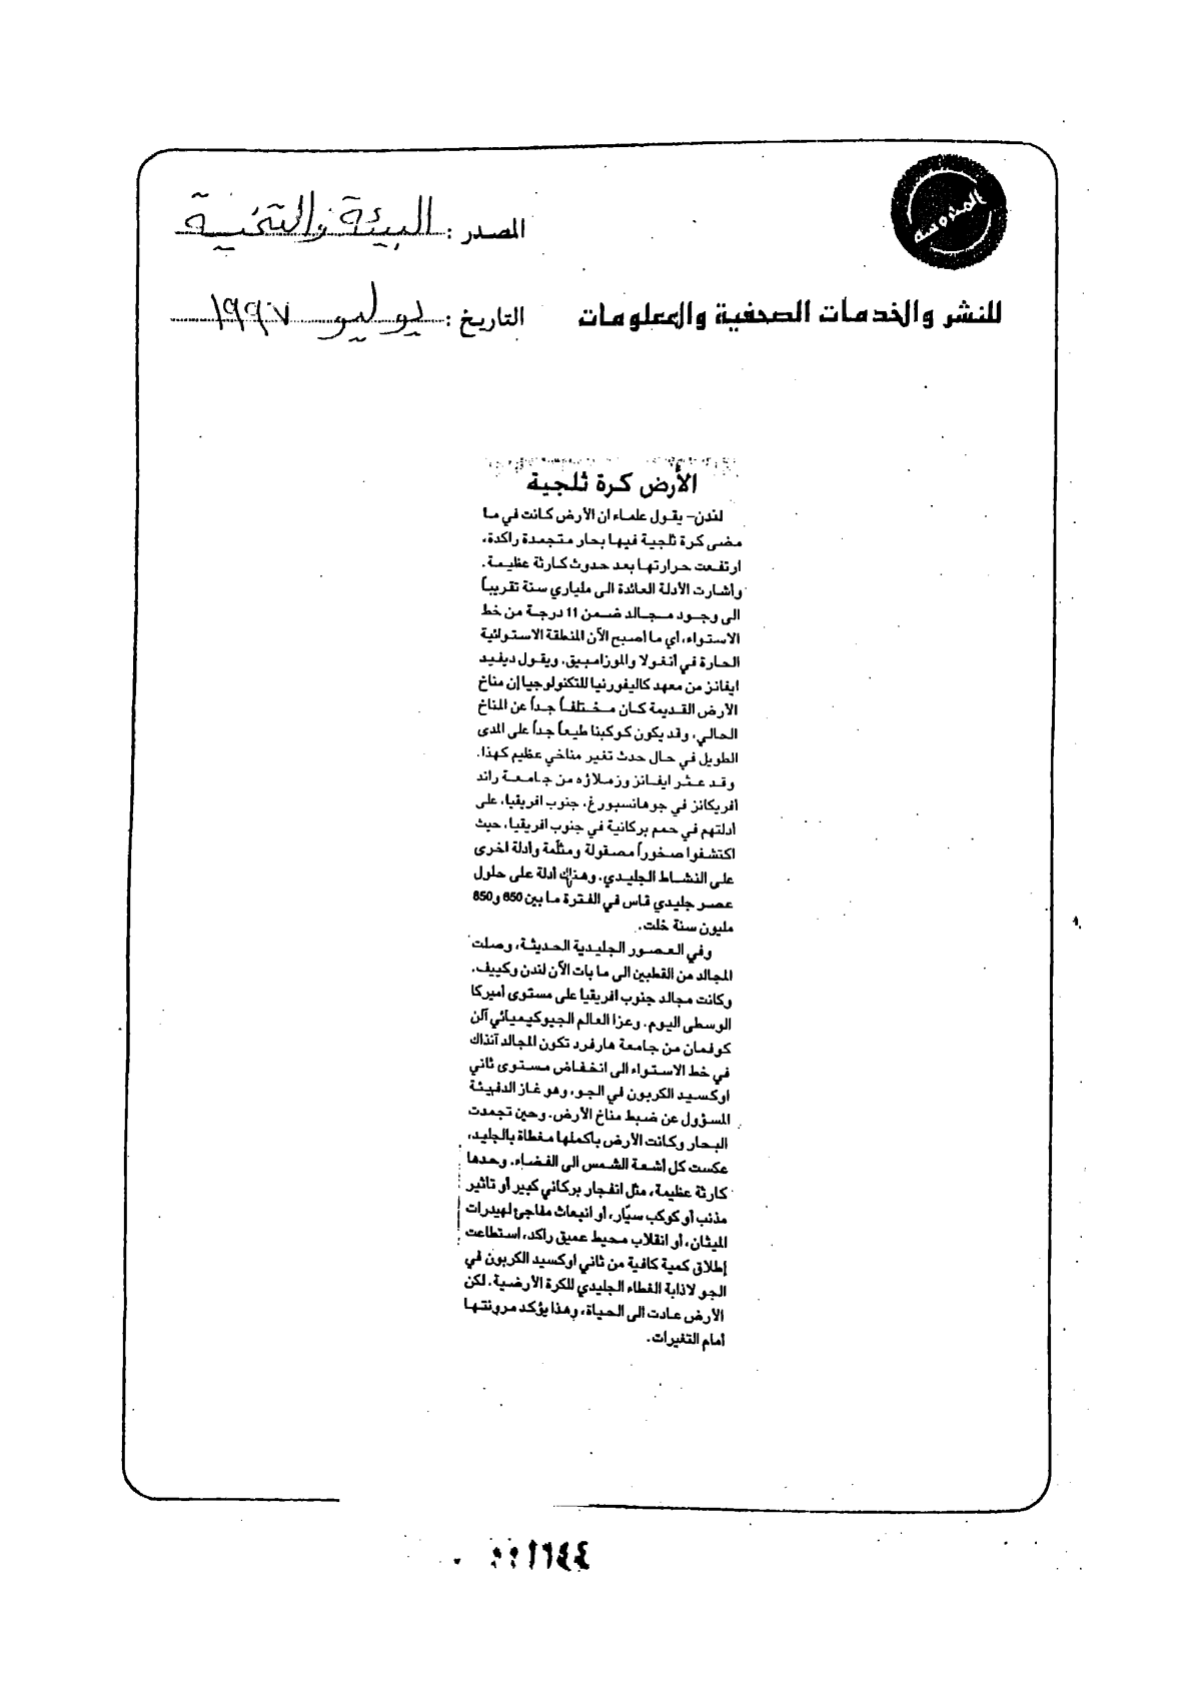 المصدر : البيئة والتنمية
للنشر والخدمات الصحفية والمعلومات
التاريخ : يوليو ١٩٩٧
الأرض كرة ثلجية
لندن- يقول علماء ان الأرض كانت في ما
مضى كرة ثلجية فيها بحار متجمدة راكدة،
ارتفعت حرارتها بعد حدوث كارثة عظيمة.
وأشارت الأدلة العائدة الى ملياري سنة تقريباً
الى وجود مجالد ضمن 11 درجة من خط
الاستواء، أي ما أصبح الآن المنطقة الاستوائية
الحارة في أنغولا والموزامبيق. ويقول ديفيد
ايفانز من معهد كاليفورنيا للتكنولوجيا إن مناخ
الأرض القديمة كان مختلفاً جداً عن المناخ
الحالي، وقد يكون كوكبنا طيعاً جداً على المدى
الطويل في حال حدث تغير مناخي عظيم كهذا.
وقد عثر ايفانز وزملاؤه من جامعة راند
أفريكانز في جوهانسبورغ، جنوب افريقيا، على
أدلتهم في حمم بركانية في جنوب افريقيا، حيث
اكتشفوا صخوراً مصقولة ومثلّمة وأدلة اخرى
على النشاط الجليدي. وهناك أدلة على حلول
عصر جليدي قاس في الفترة ما بين 650 و850
مليون سنة خلت.
وفي العصور الجليدية الحديثة، وصلت
المجالد من القطبين الى ما بات الآن لندن وكييف.
وكانت مجالد جنوب افريقيا على مستوى أميركا
الوسطى اليوم. وعزا العالم الجيوكيميائي آلن
كوفمان من جامعة هارفرد تكون المجالد آنذاك
في خط الاستواء الى انخفاض مستوى ثاني
اوكسيد الكربون في الجو، وهو غاز الدفيئة
المسؤول عن ضبط مناخ الأرض. وحين تجمدت
البحار وكانت الأرض بأكملها مغطاة بالجليد،
عكست كل أشعة الشمس الى الفضاء. وحدها
كارثة عظيمة، مثل انفجار بركاني كبير أو تأثير
مذنب أو كوكب سيّار، أو انبعاث مفاجئ لهيدرات
الميثان، أو انقلاب محيط عميق راكد، استطاعت
إطلاق كمية كافية من ثاني اوكسيد الكربون في
الجو لاذابة الغطاء الجليدي للكرة الأرضية. لكن
الأرض عادت الى الحياة، وهذا يؤكد مرونتها
أمام التغيرات.